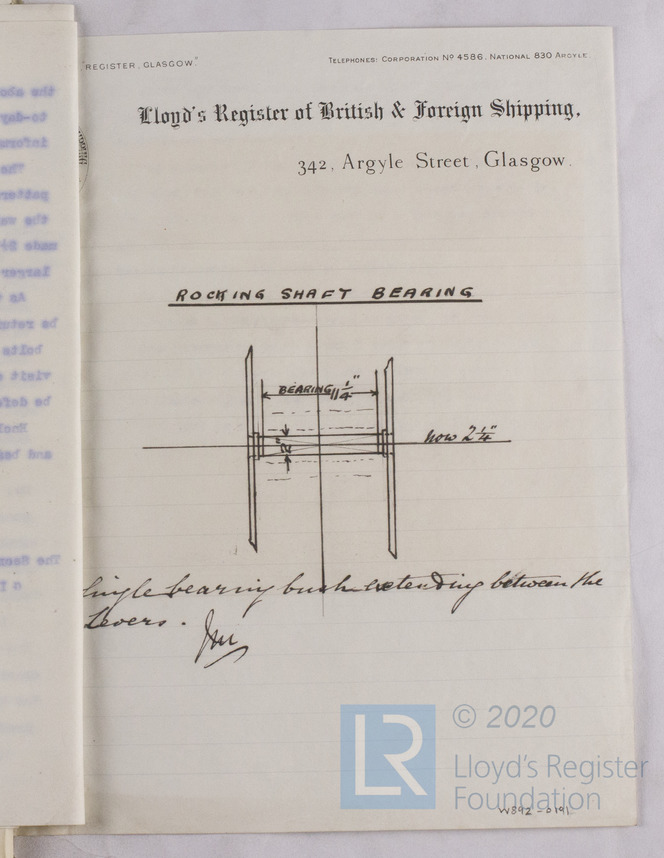 REGISTER, GLASGOW."
TELEPHONES: CORPORATION Nº 4586. NATIONAL 830 ARGYLE.
Lloyd's Register of British & Foreign Shipping,
342, Argyle Street, Glasgow.
ROCKING SHAFT BEARING
BEARING 11 1/4"
2"
now 2 1/4"
Single bearing bush extending between the
Levers.
© 2020
LR
Lloyd's Register
Foundation
W892-0191